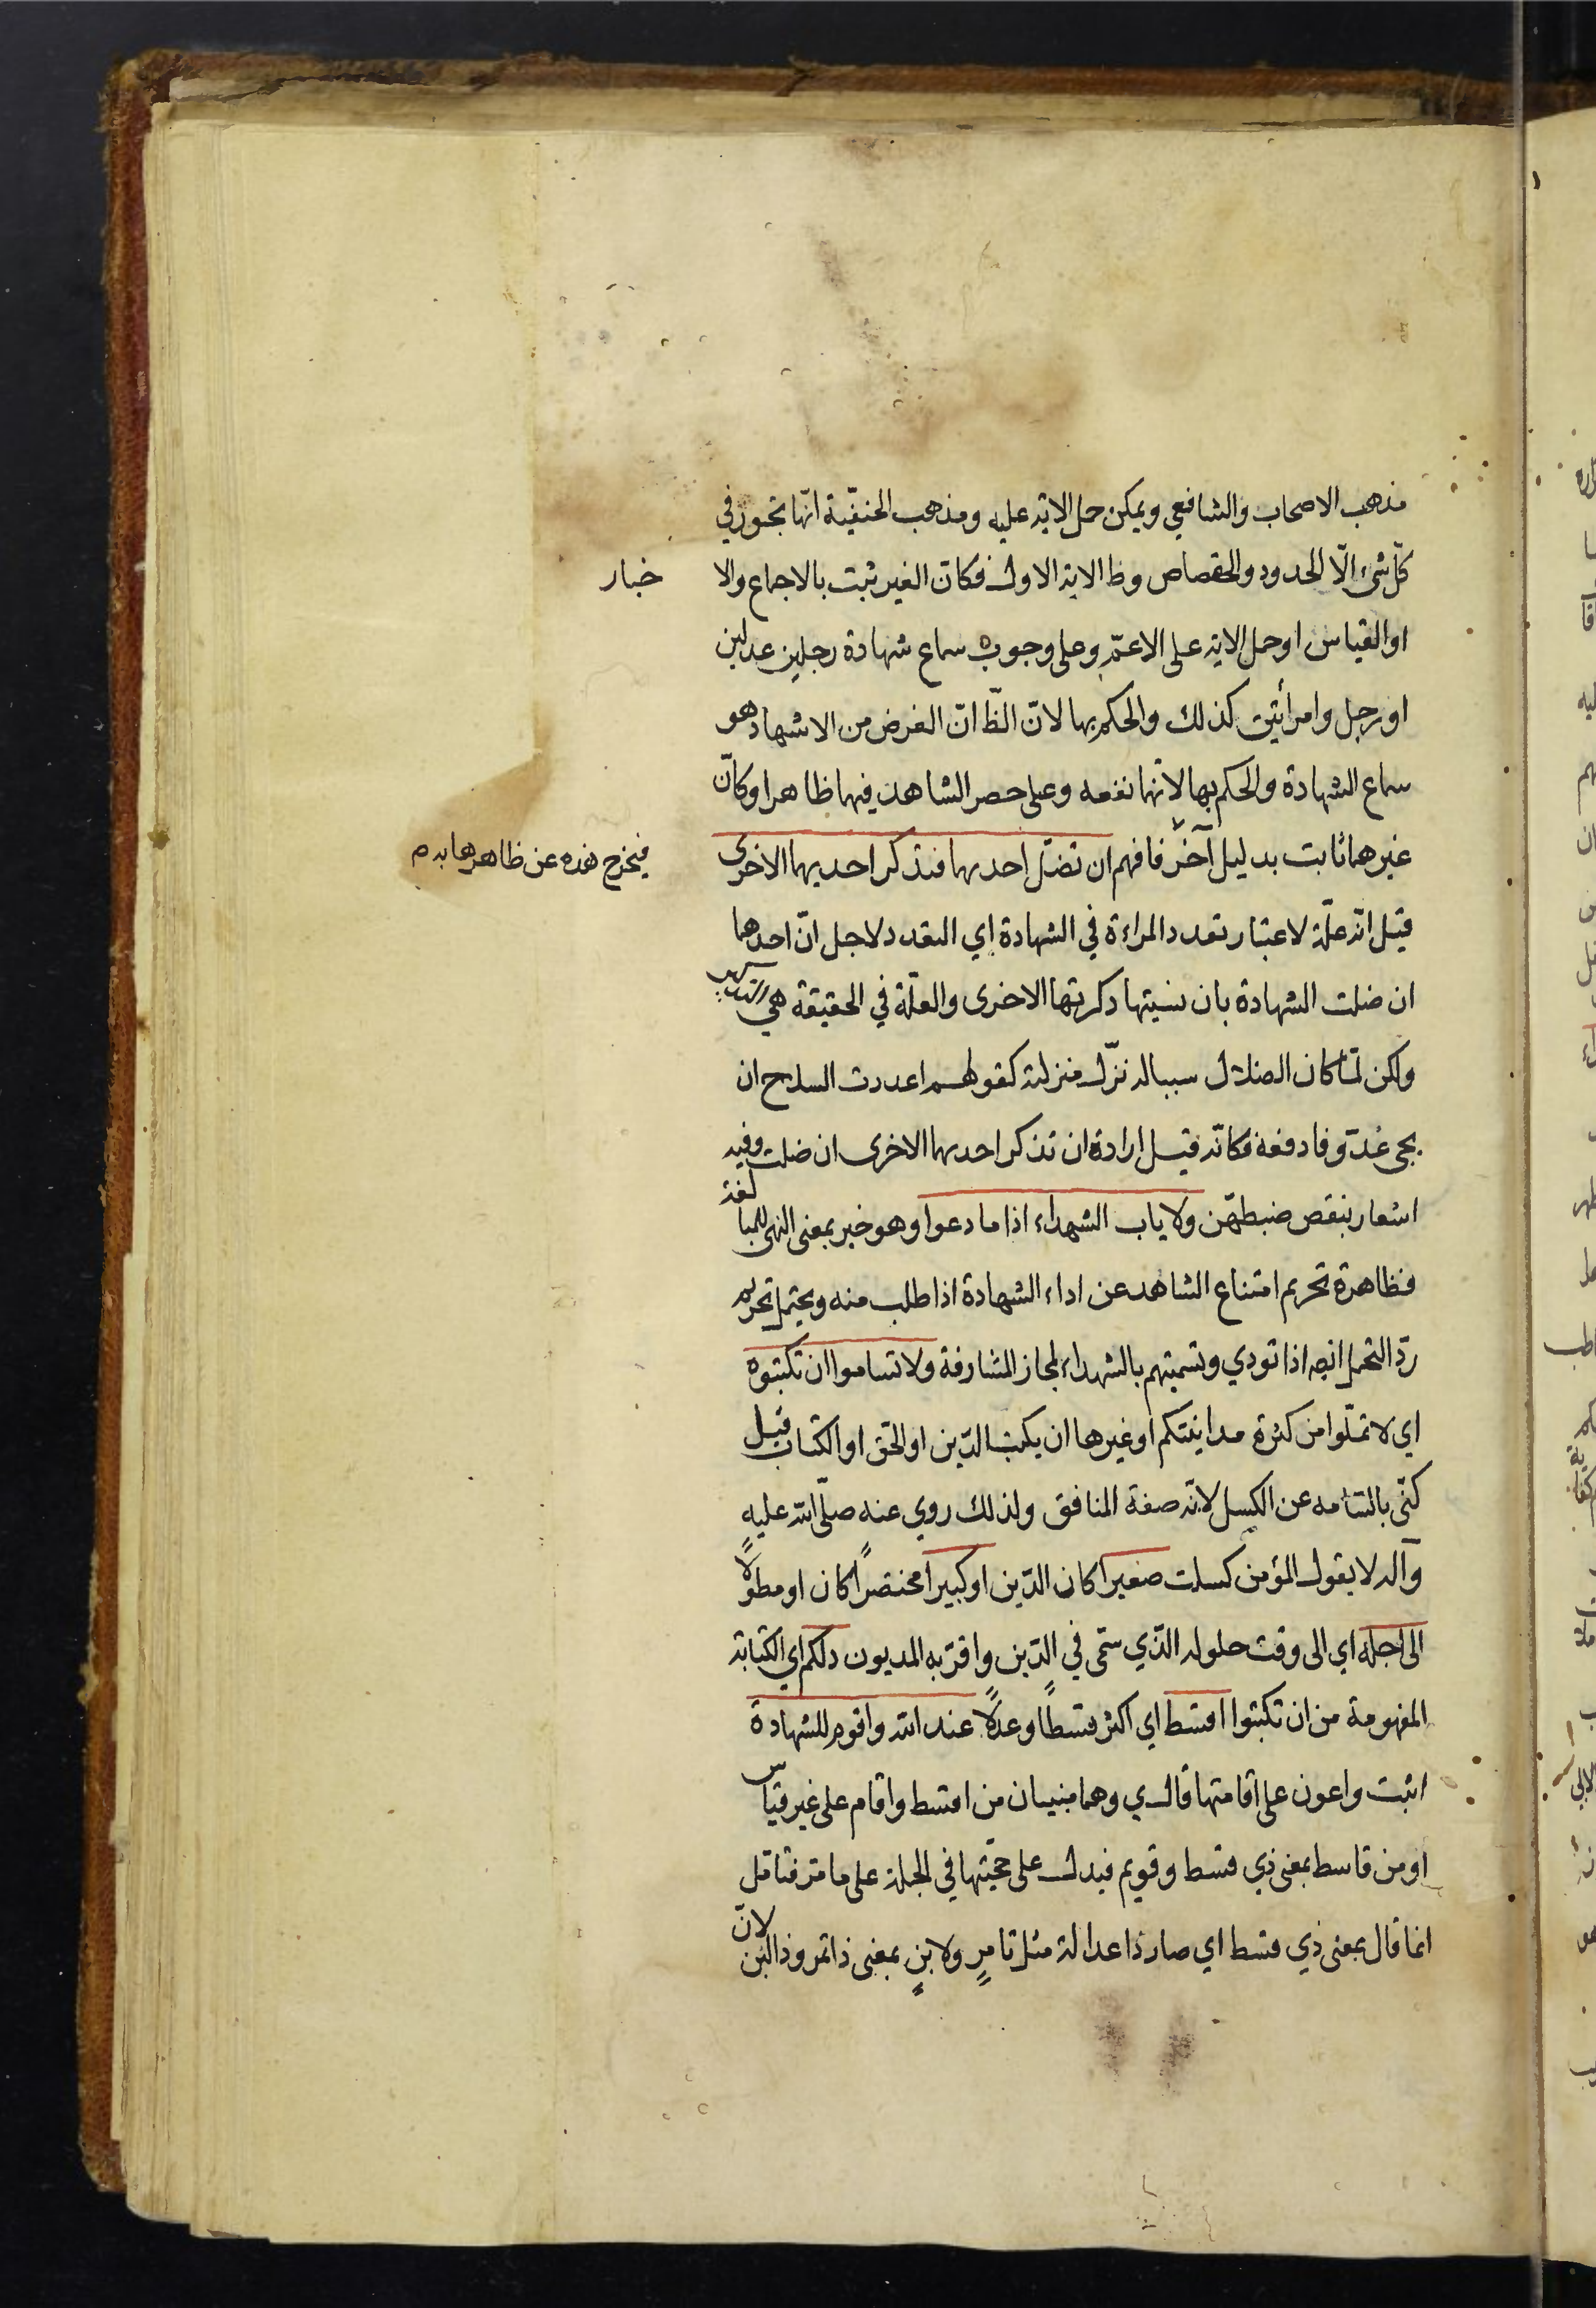 مذهب الاصحاب والشافعي ويمكن حمل الاية عليه ومذهب الحنفيّة انّها تجوز في
كلّ شئ الّا الحدود والقصاص وظ الاية الاول فكانّ الغير ثبت بالاجماع والا خبار
او القياس او حمل الاية على الاعمّ وعلى وجوب سماع شهادة رجلين عدلين
او رجل وامرأتين كذلك والحكم بها لانّ الظّ انّ الغرض من الاشهاد هو
سماع الشهادة والحكم بها لانّها نفعه وعلى حصر الشاهد فيهما ظاهرا وكانّ
غيرهما ثابت بدليل آخر فافهم ان تضلّ احديهما فتذكر احديهما الاخرى
فيخرج هذه عن ظاهرها به م
قيل انّه علّة لاعتبار تعدد المراءة في الشهادة اي التعدد لاجل انّ احدهما
ان ضلت الشهادة بان نسيتها ذكرتها الاخرى والعلّة في الحقيقة هي التذكير
ولكن لمّا كان الضلال سببا له نزّل منزلته كقولهم اعددت السلاح ان
يجئ عدّو فادفعه فكانّه قيل ارادة ان تذكر احديهما الاخرى ان ضلت وفيه
اشعار بنقص ضبطهّن ولا ياب الشهداء اذا ما دعوا وهو خبر بمعنى النهى للمبا لغة
فظاهرة تحريم امتناع الشاهد عن اداء الشهادة اذا طلب منه ويحتمل تحريم
ردّ التحمل ايضه اذا نودي وتسميتهم بالشهداء لمجاز المشارفة ولا تساموا ان تكتبوه
اي لا تملّوا من كثرة مداينتكم او غيرها ان يكتب الدّين او الحق او الكتاب قيل
كنّى بالسّأمه عن الكسل لانّه صفة المنافق ولذلك روي عنه صلّى الله عليه
وآله لا يقول المؤمن كسلت صغيرا كان الدّين او كبيرا مختصرًا كان او مطولًا
الى اجله اي الى وقت حلوله الذّي سمّى في الدّين واقرّ به المديون ذلكم اي الكتابة
المفهومة من ان تكتبوا اقسط اي اكثر قسطًا وعدلًا عند الله واقوم للشهادة
اثبت واعون على اقامتها قال ي وهما مبنيان من اقسط واقام على غير قياس
او من قاسط بمعنى ذي قسط وقويم فيدل على حجّيتها في الجملة على ما مرّ فتامّل
انما قال بمعنى ذي قسط اي صار ذا عدالة مثل تامرٍ ولابنٍ بمعنى ذا تمر وذا لبن لانّ